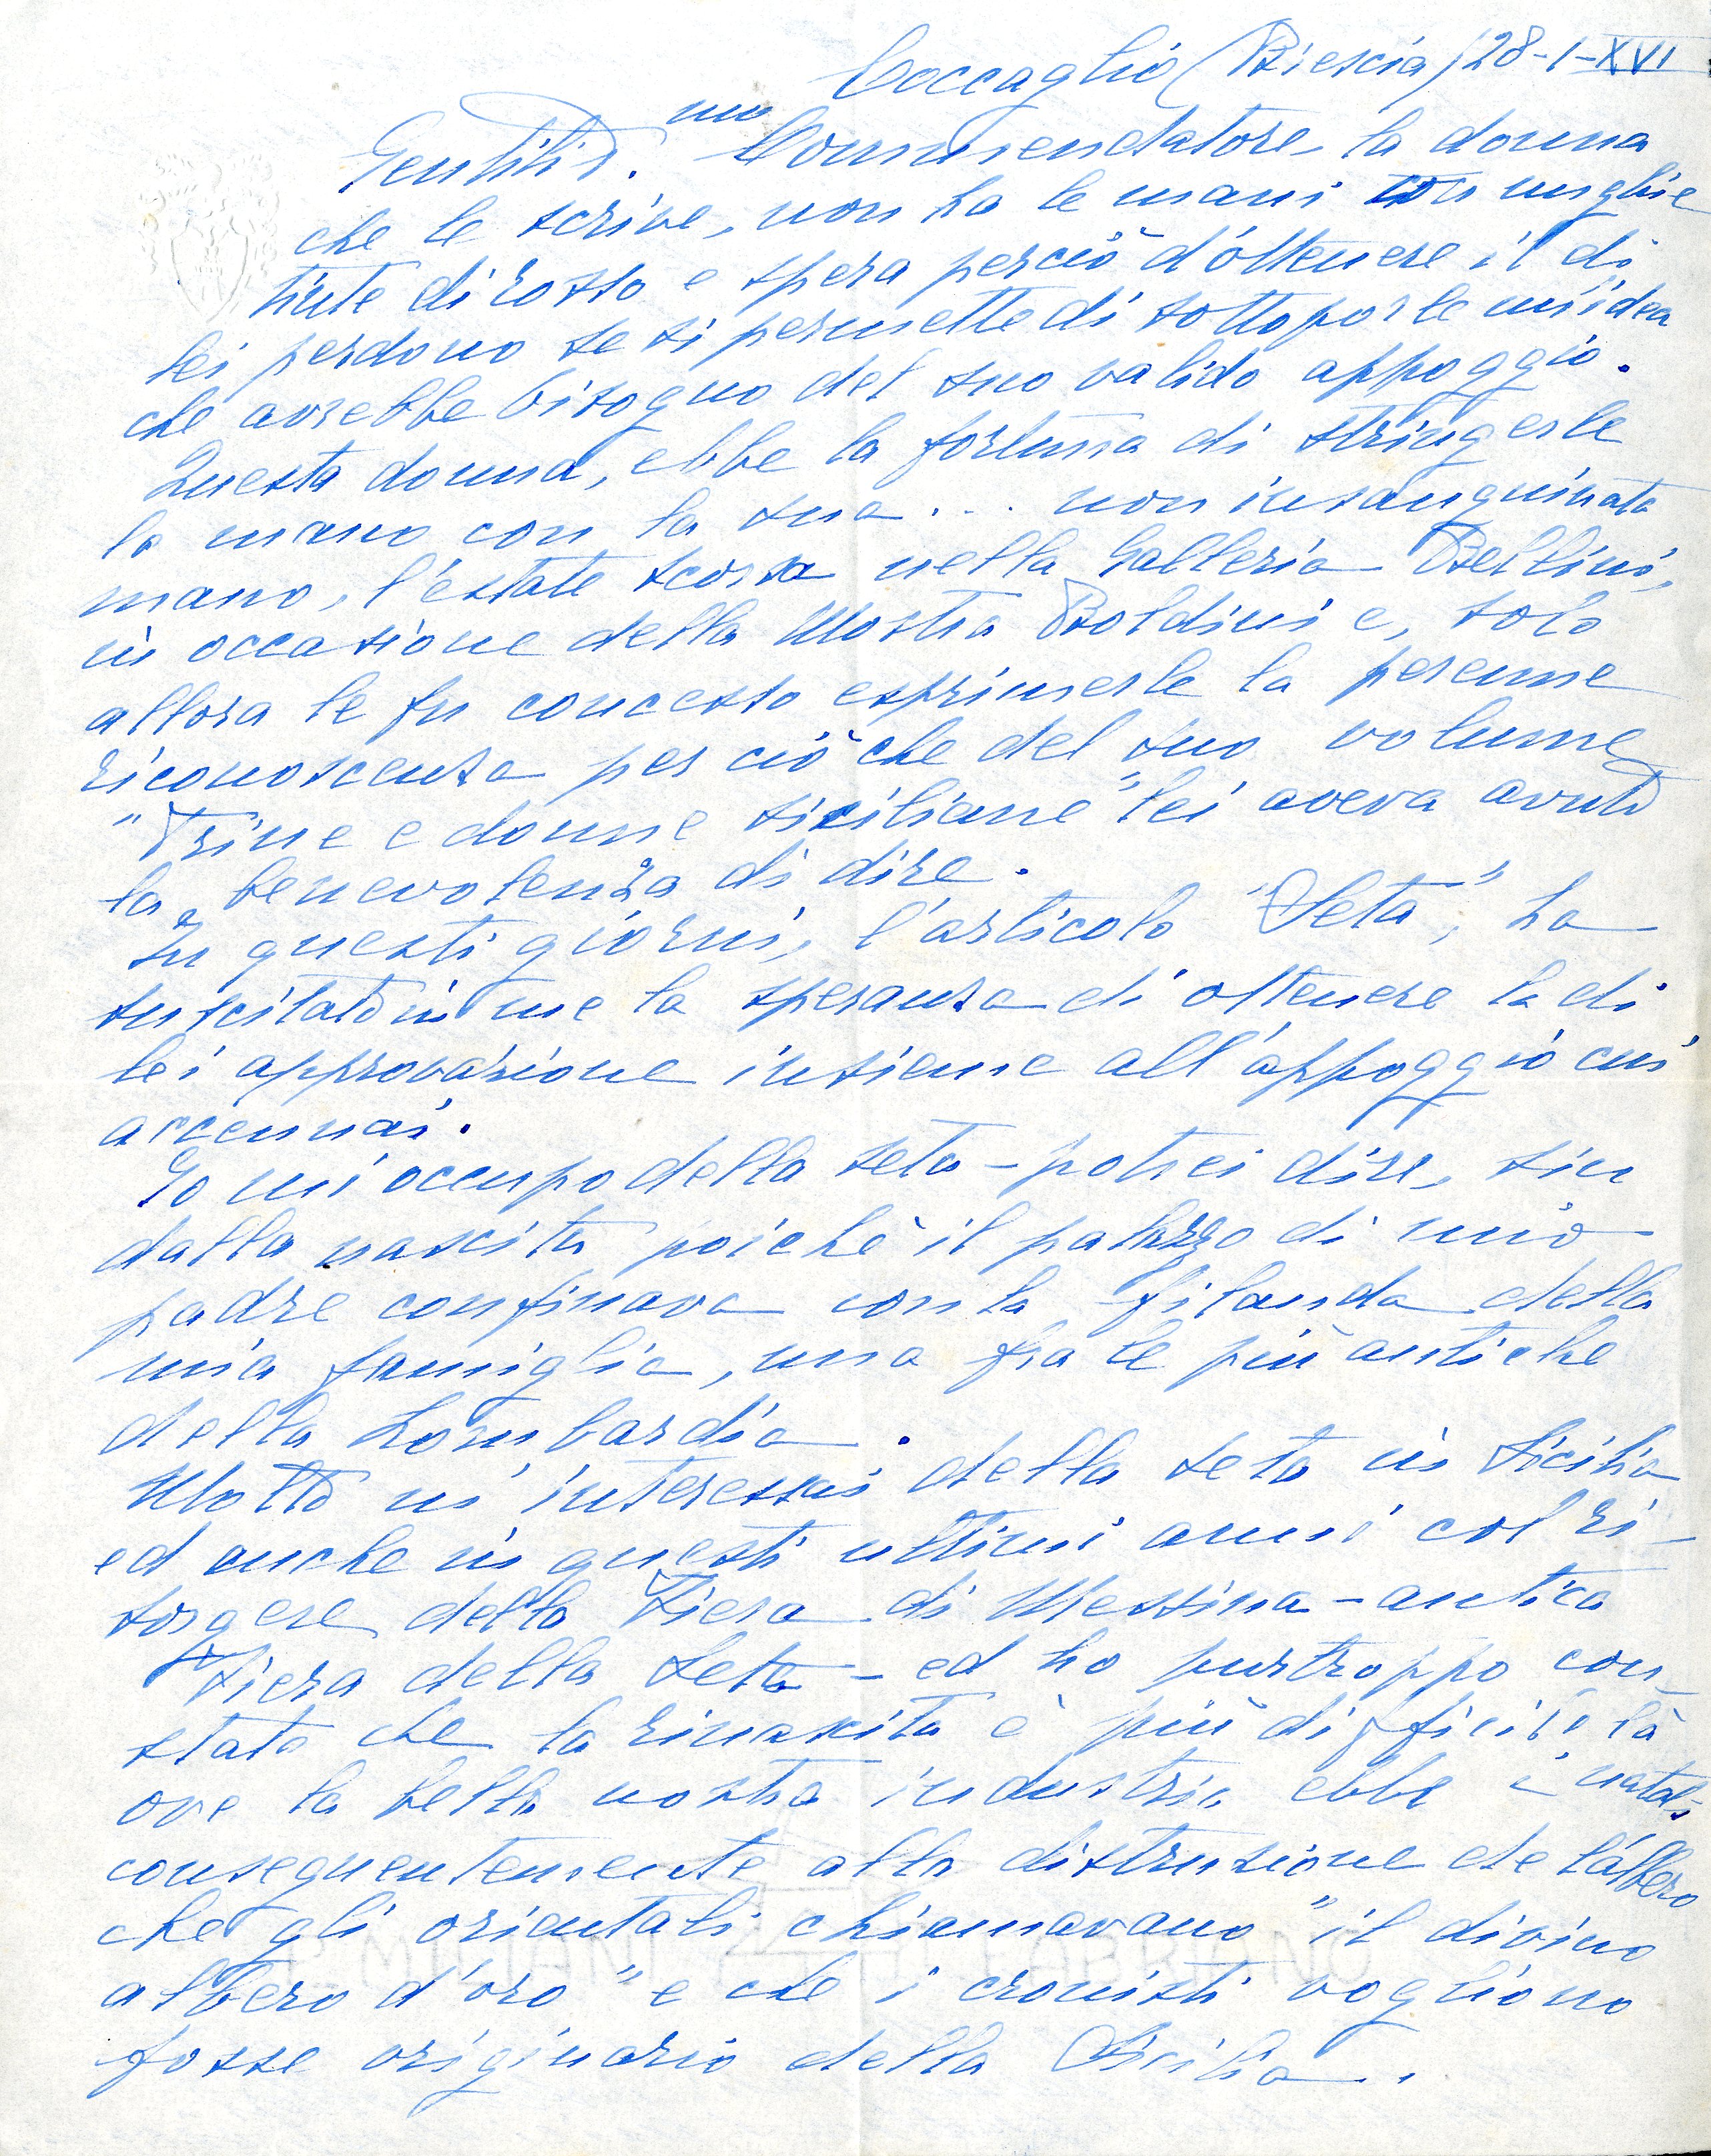 Coccaglio (Brescia) 28-1-XVI
Gentiliss.mo Commendatore, la donna
che le scrive, non ha le mani con unghie
tinte di rosso e spera perciò d'ottenere il di
lei perdono se si permette di sottoporle un'idea
che avrebbe bisogno del suo valido appoggio.
Questa donna, ebbe la fortuna di stringerle
la mano con la sua... non insanguinata
mano, l'estate scorsa nella Galleria Bellini,
in occasione della Mostra Boldini e, solo
allora le fu concesso esprimerle la perenne
riconoscenza per ciò che del suo volume
"Trine e donne siciliane" lei aveva avuto
la benevolenza di dire.
In questi giorni, l'articolo "Seta", ha
suscitato in me la speranza di ottenere la di
lei approvazione insieme all'appoggio cui
accennai.
Io mi occupo della seta - potrei dire, sin
dalla nascita poichè il palazzo di mio
padre confinava con la filanda della
mia famiglia, una fra le più antiche
della Lombardia.
Molto m'interessai della seta in Sicilia
ed anche in questi ultimi anni col ri-
sorgere della Fiera di Messina - antica
Fiera della Seta - ed ho purtroppo con-
stato che la rinascita è più difficile là
ove la bella nostra industria ebbe i natali,
conseguentemente alla distruzione de l'albero
che gli orientali chiamavano "il divino
albero d'oro" e che i cronisti vogliono
fosse originario della Sicilia.
P. MILIANI FABRIANO